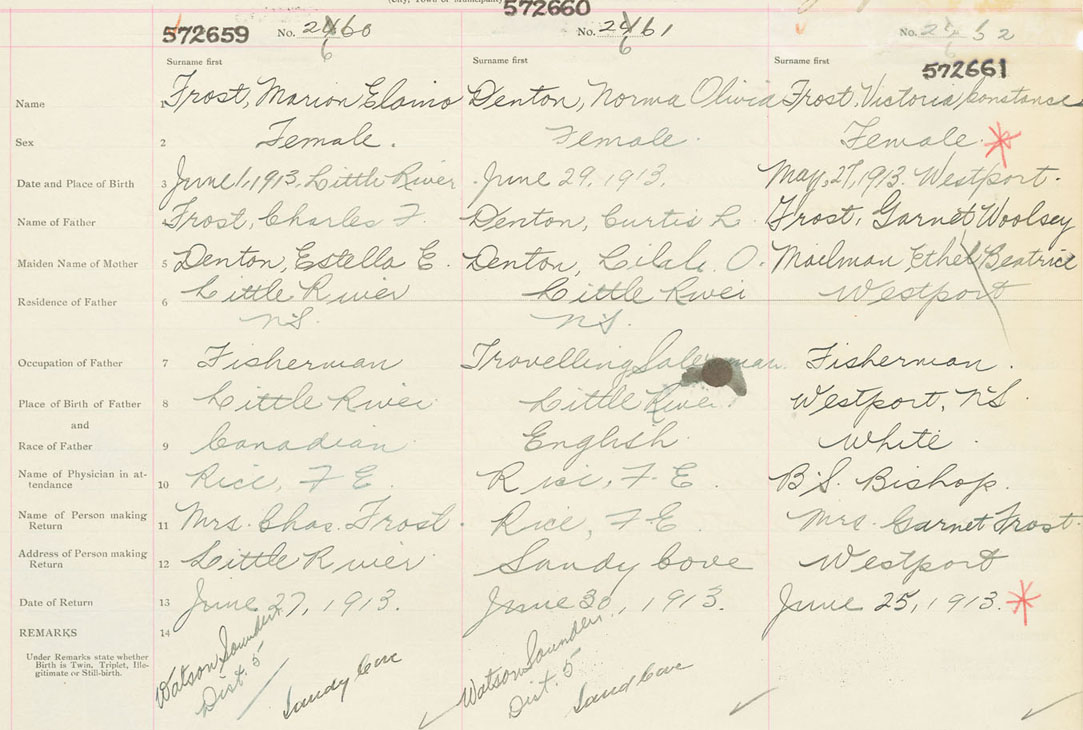 (City, Town or Municipality
572659 No. 2460 6 572660 No. 2461 6 No. 2 6 2 6
Surname first Surname first Surname first 572661
Name Frost, Marion Elaine Denton, Norma Olivia Frost, Victoria Constance
Sex 2 Female. Female. Female.
Date and Place of Birth 3 June 1, 1913, Little River June 29, 1913. May, 27, 1913. Westport.
Name of Father Frost, Charles F. Denton, Curtis L Frost, Garnet Woolsey
Maiden Name of Mother 5 Denton, Estella E. Denton, O. Mailman Ethel Beatrice
Residence of Father 6 Little River Little River Westport
NS. NS.
Occupation of Father 7 Fisherman Travelling Salesman. Fisherman.
Place of Birth of Father 8 Little River Little River Westport, NS
and
Race of Father 9 Canadian English White.
Name of Physician in at-
tendance 10 Rice, F E. Rice, F. E. B.S. Bishop.
Name of Person making
Return 11 Mrs. Chas. Frost. Rice, F E Mrs. Garnet Frost.
Address of Person making
Return 12 Little River Sandy Cove Westport
Date of Return 13 June 27, 1913. June 30, 1913. June 25, 1913.
REMARKS 14
Under Remarks state whether
Birth is Twin, Triplet, Ille-
gitimate or Still-birth.
Watson Saunders Watson Saunders
Dist. 5 Dist. 5
Sandy Cove Sand Cove